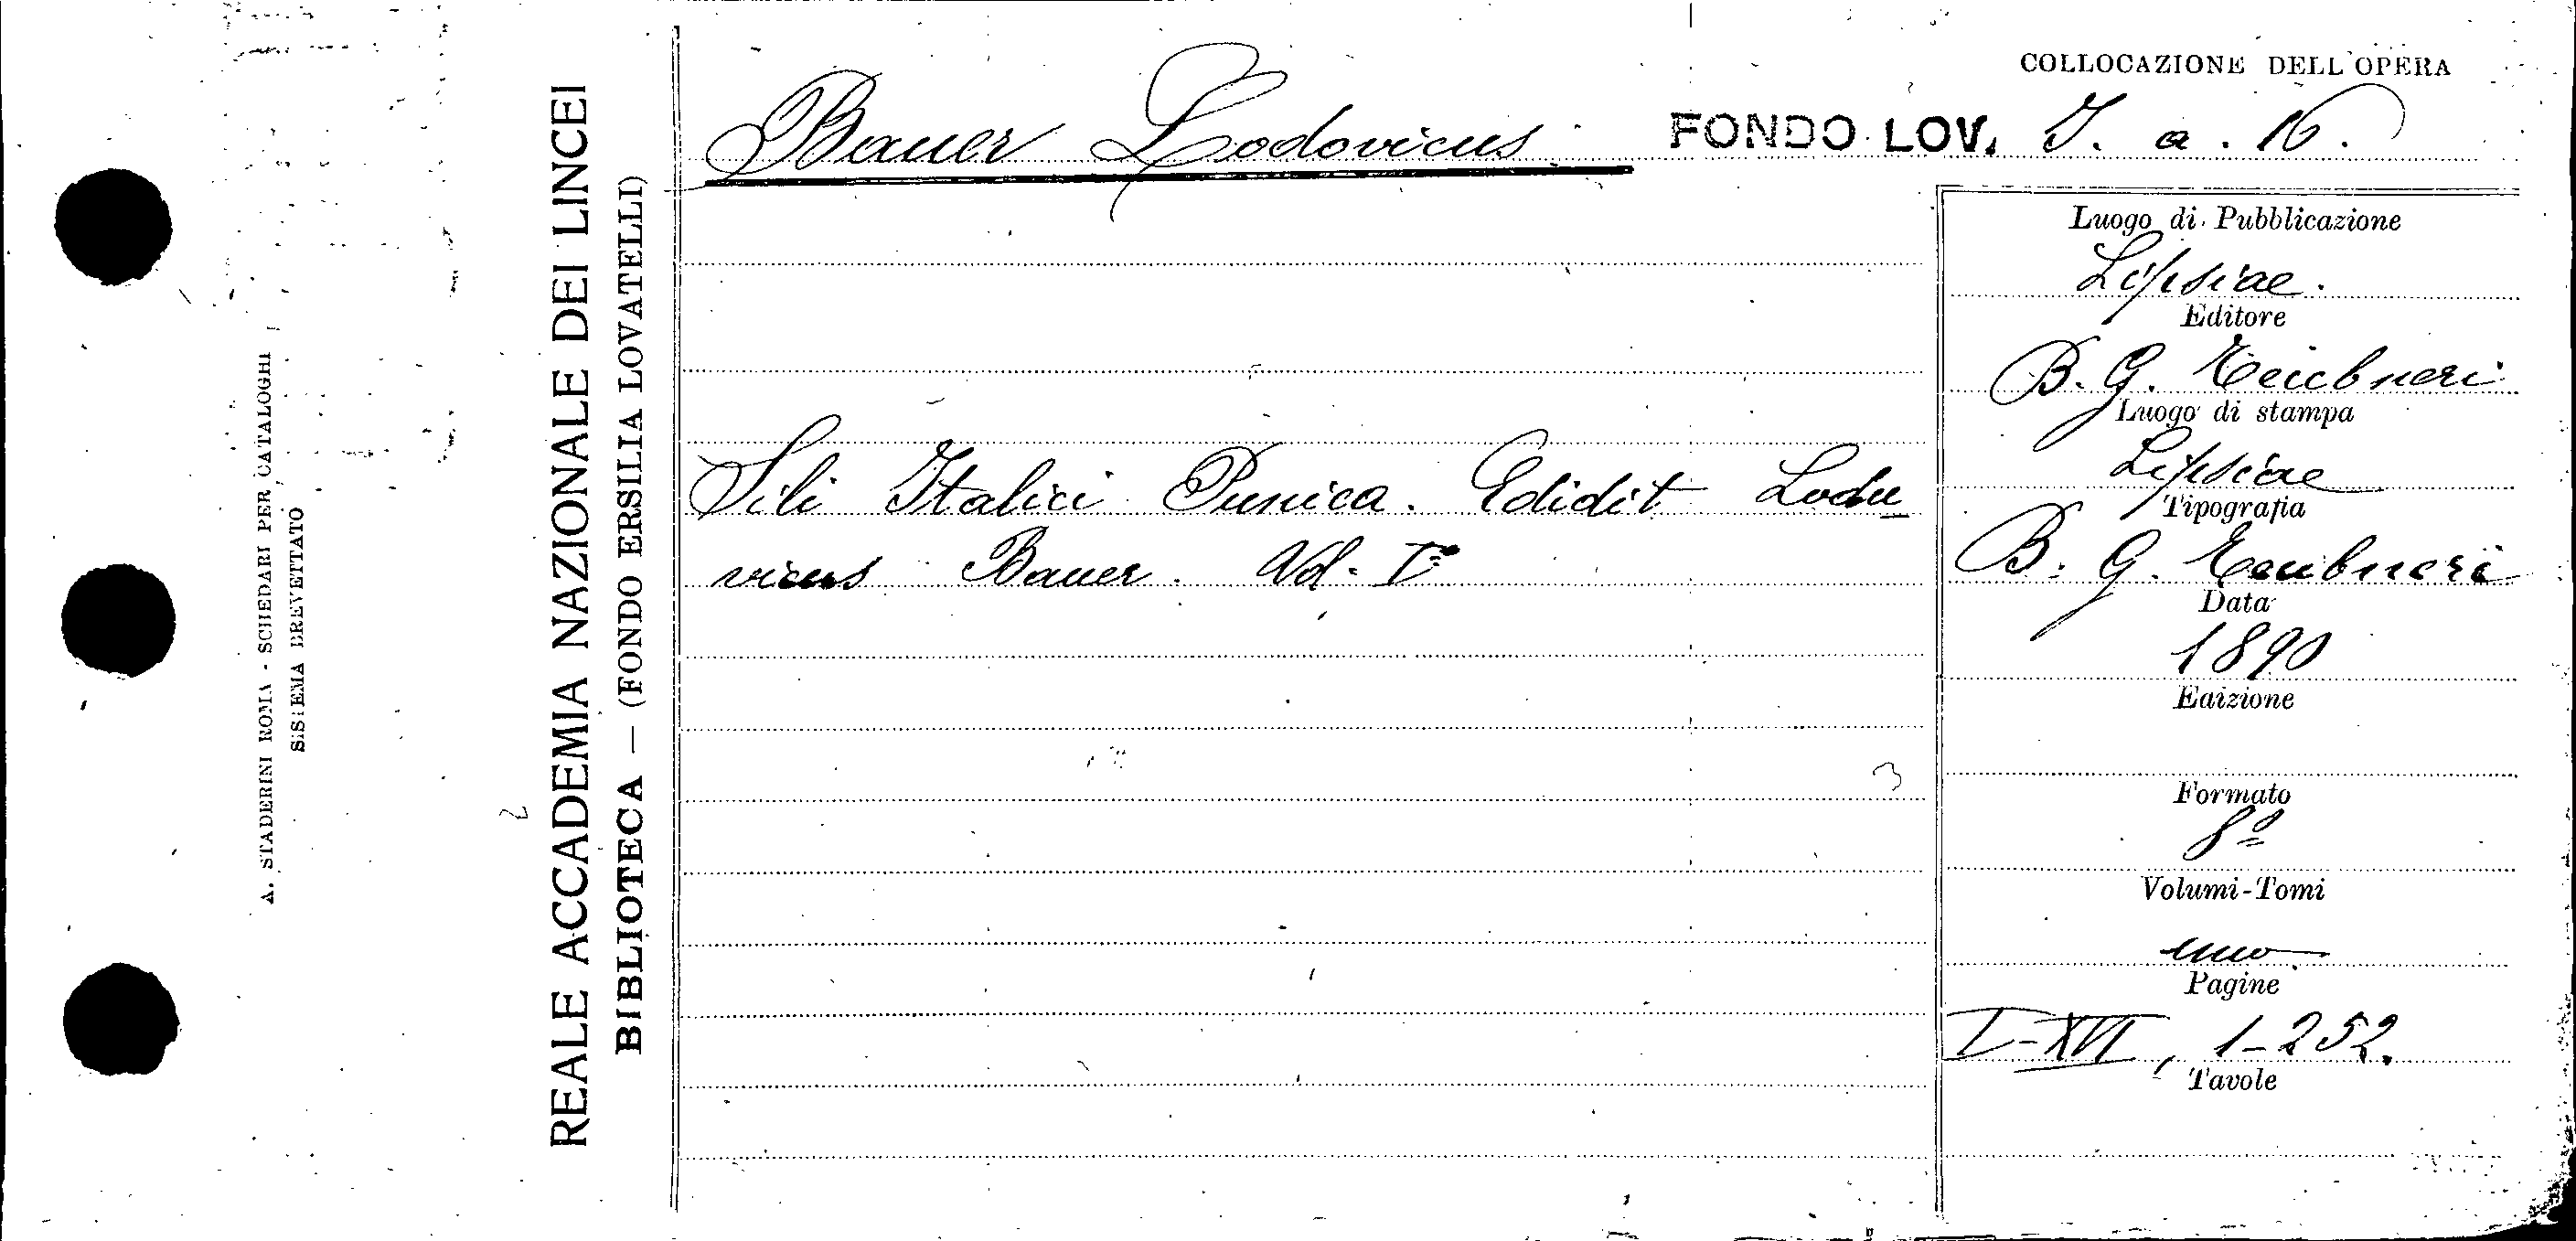 A. STADERINI ROMA - SCHEDARI PER CATALOGHI
SISTEMA BREVETTATO
REALE ACCADEMIA NAZIONALE DEI LINCEI
BIBLIOTECA — (FONDO ERSILIA LOVATELLI)
COLLOCAZIONE DELL'OPERA
Bauer Lodovicus FONDO LOV. I. a. 16.
Sili Italici Punica. Edidit Lodu
vicus Bauer. Vol. I°
Luogo di Pubblicazione
Lipsiae.
Editore
B. G. Teubneri
Luogo di stampa
Lipsiae
Tipografia
B. G. Teubneri
Data
1890
Edizione
Formato
8º
Volumi-Tomi
uno
Pagine
I-XVI, 1-252.
Tavole